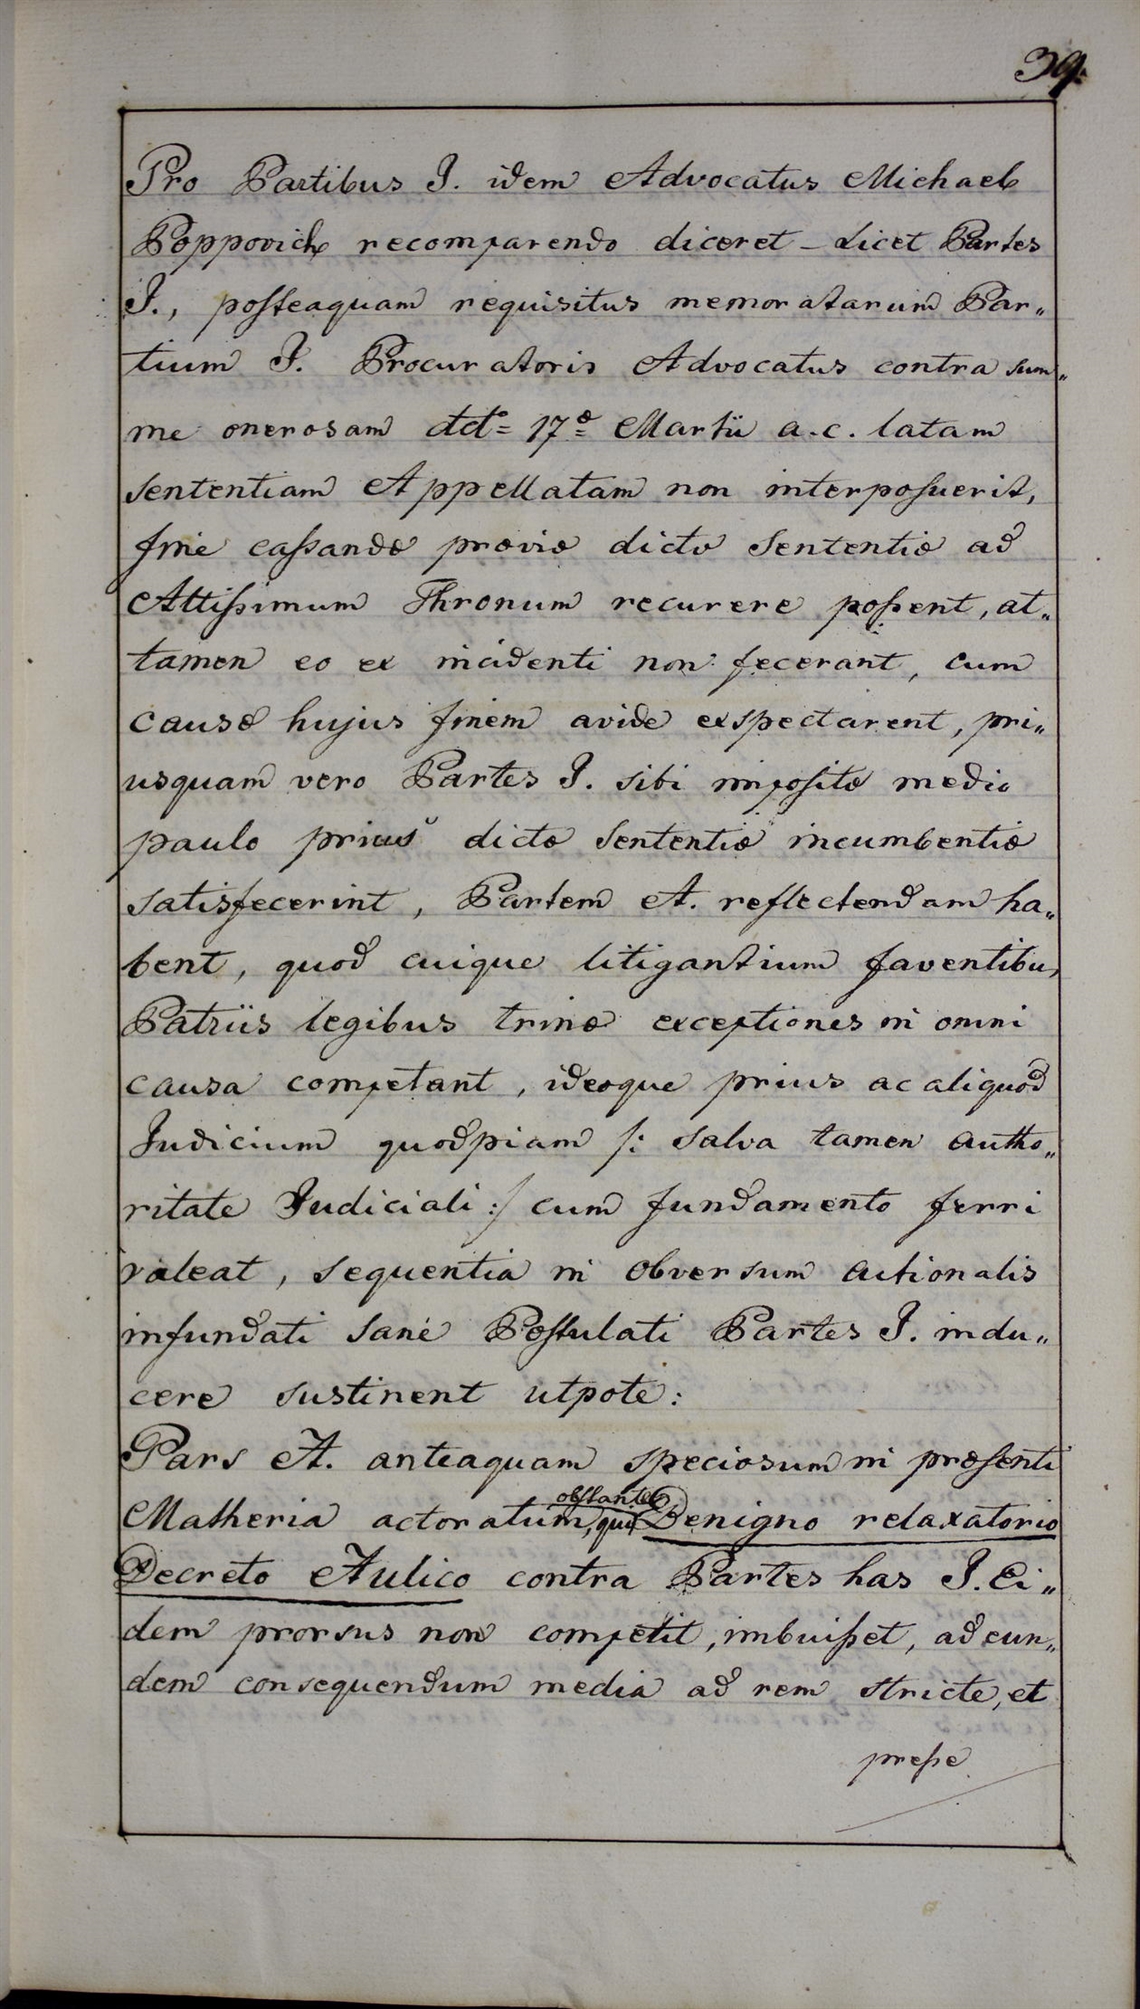 39.
Pro Partibus I. idem Advocatus Michael
Poppovich recomparendo diceret – Licet Partes
I., posteaquam requisitus memoratarum Par„
tium I. Procuratoris Advocatus contra sum„
me onerosam ddto 17æ Martii a.c. latam
Sententiam Appellatam non interposuerit,
fine cassandæ præviæ dictæ Sententiæ ad
Altissimum Thronum recurere possent, at„
tamen eo ex incidenti non fecerant, cum
causæ hujus finem avide exspectarent, pri„
usquam vero Partes I. sibi impositæ medio
paulo prius dictæ Sententiæ incumbentiæ
satisfecerint, Partem A. reflectendam ha„
bent, quod cuique litigantium faventibus
Patriis legibus trinæ exceptiones in omni
causa competant, ideoque prius ac aliquod
Iudicium quodpiam /: salva tamen autho„
ritate Iudiciali :/ cum fundamento ferri
valeat, sequentia in obversum actionalis
infundati sane Postulati Partes I. indu„
cere sustinent utpote:
Pars A. anteaquam speciosum in præsenti
obstante
Matheria actoratum, qui Benigno relaxatorio
Decreto Aulico contra Partes has I. Ei„
dem prorsus non competit, imbuisset, ad eun„
dem consequendum media ad rem stricte, et
presse